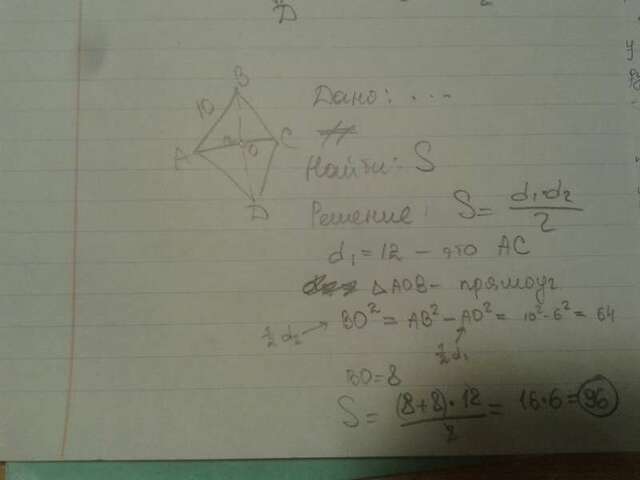 D
B
10
A
O
C
D
Дано: ...
Найти: S
Решение: S = d₁·d₂/2
d₁ = 12 – это AC
△AOB – прямоуг
½d₂ → BO² = AB² – AO² = 10² - 6² = 64
½d₁
BO = 8
S = (8+8)·12/2 = 16·6 = 96